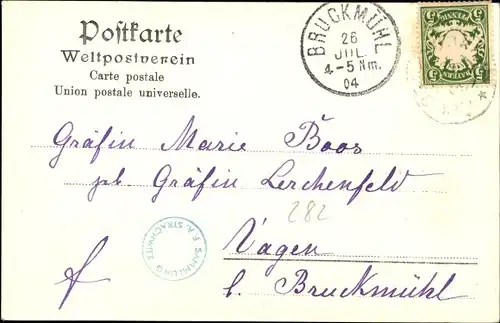 Postkarte
Weltpostverein
Carte postale
Union postale universelle.
BRUCKMÜHL
26
JUL.
4-5 Nm.
04
BAYERN
PFENNIG
5 5
5 5
Gräfin Marie Boos
geb Gräfin Lerchenfeld
282
SAMMLUNG
F. A. STRACHWITZ
Vagen
b. Bruckmühl